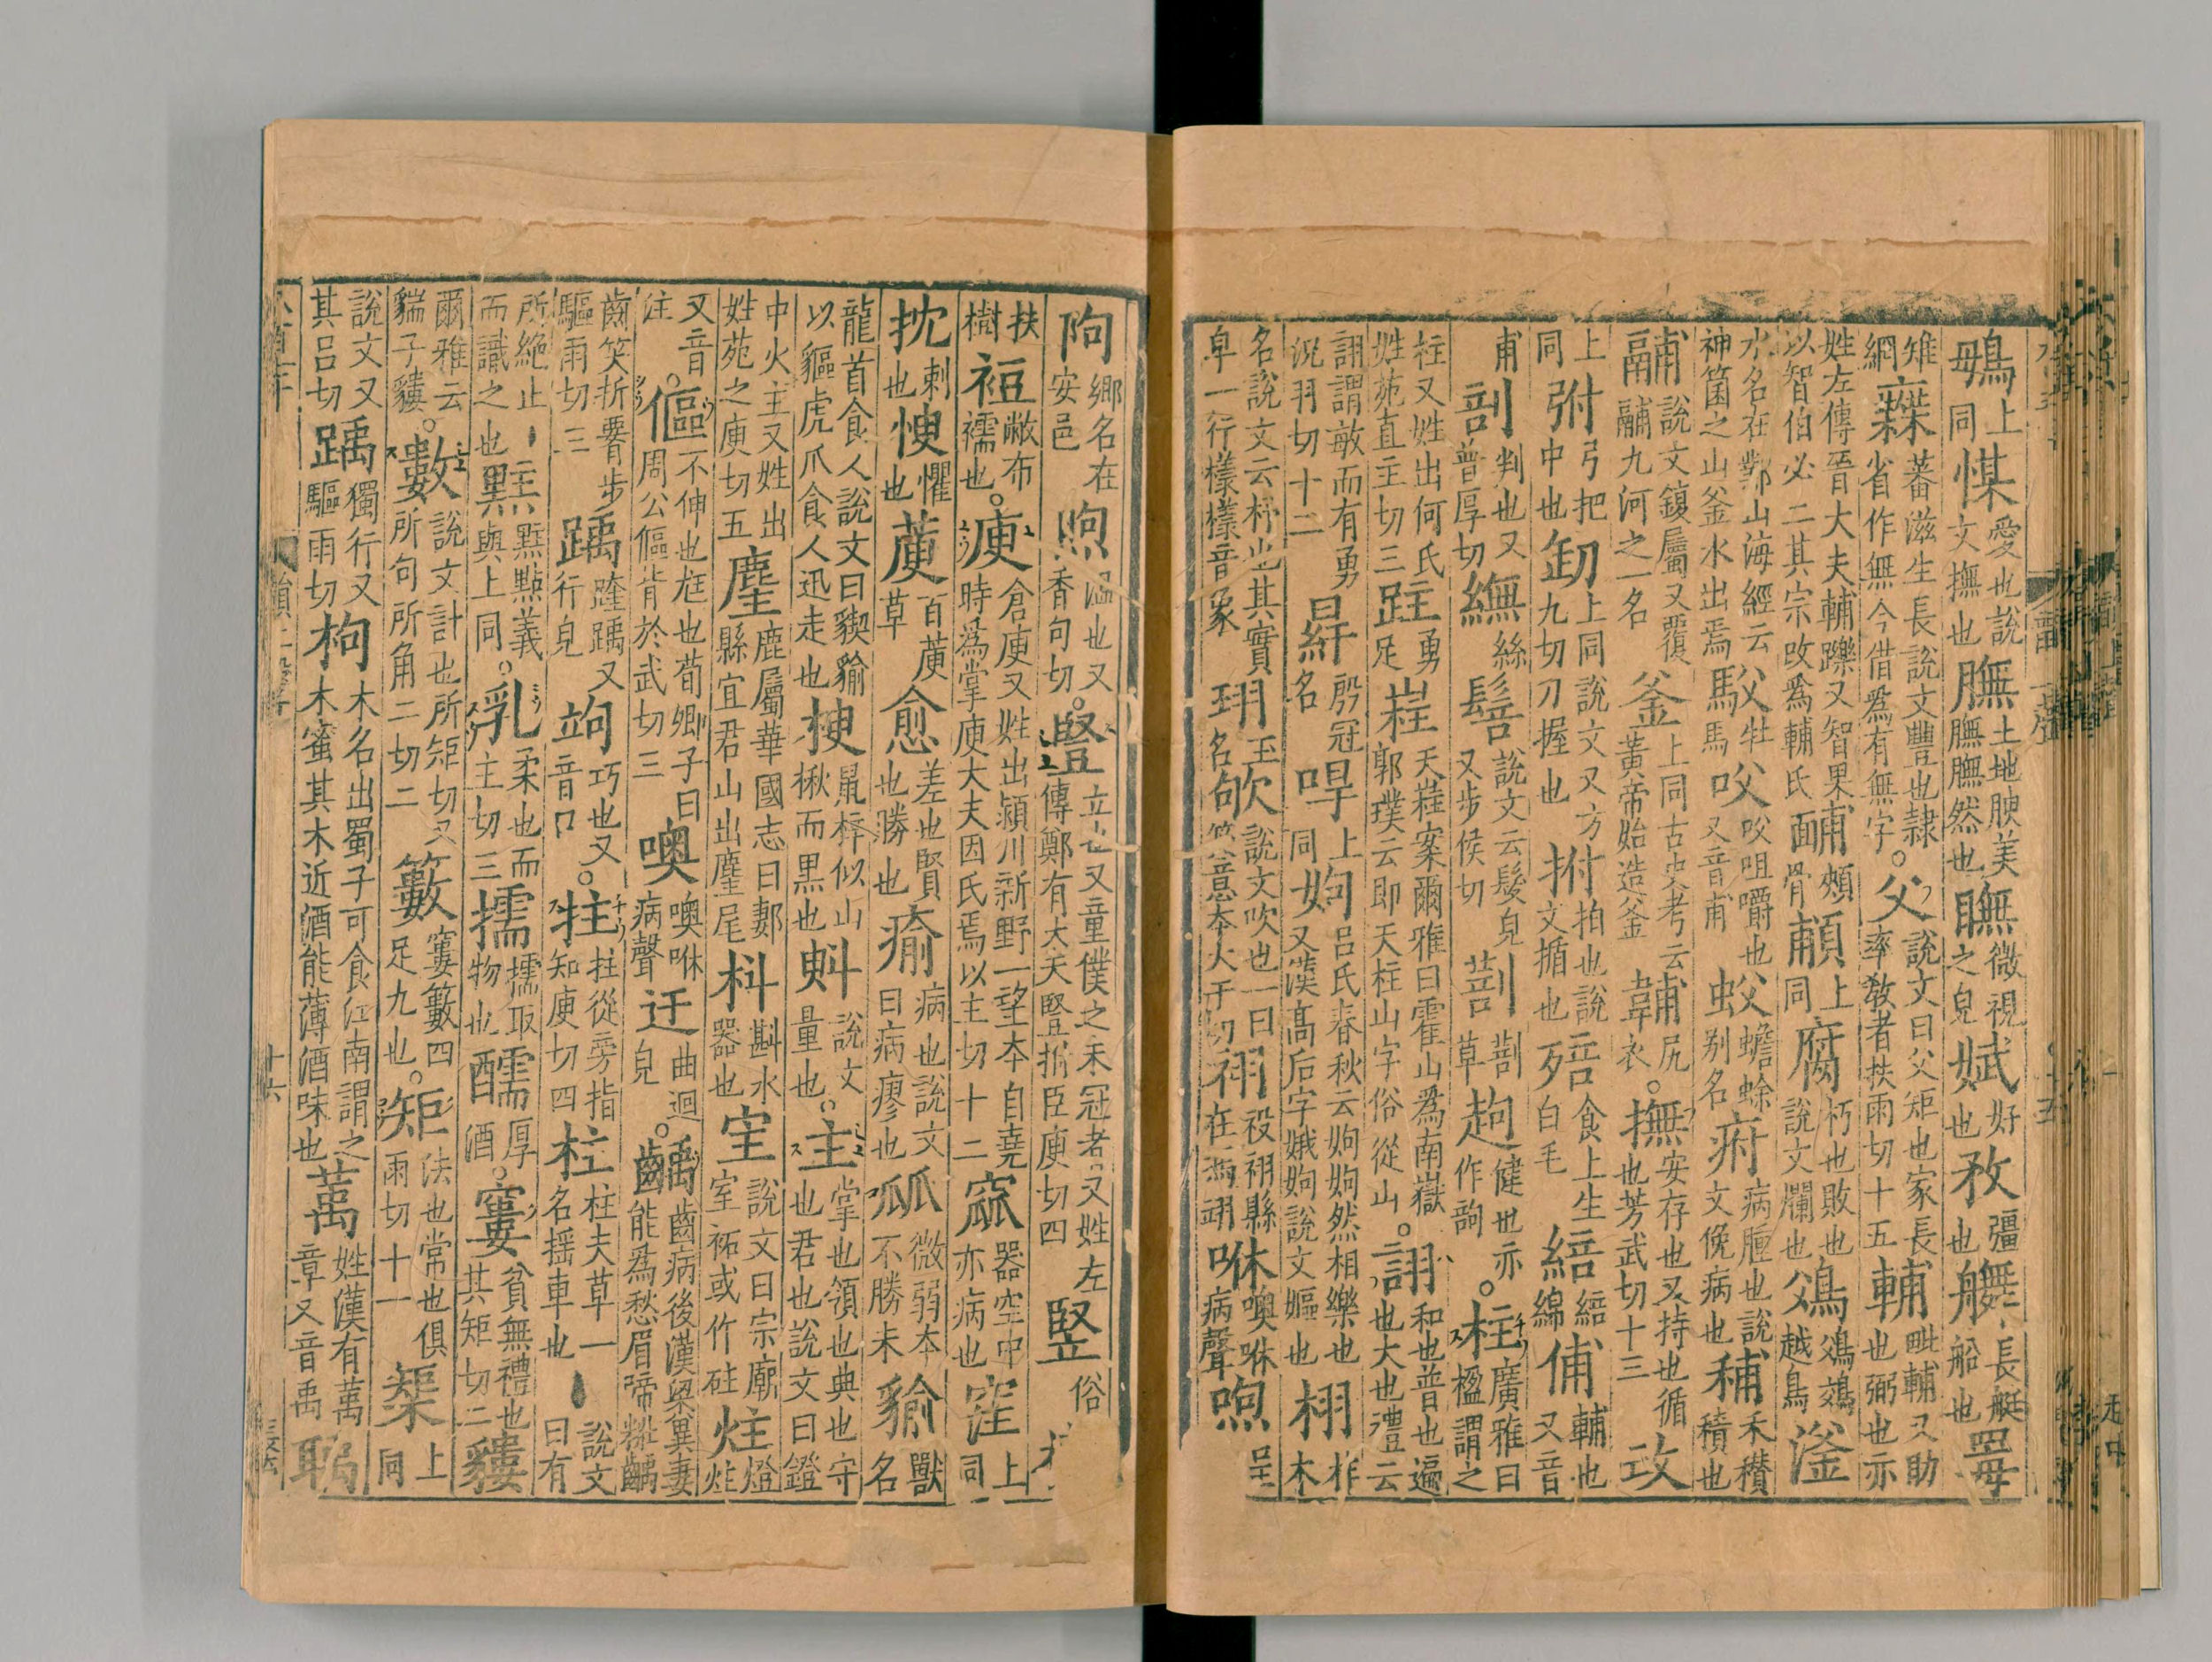 䳇上同㥰愛也說文撫也膴土地腴美膴膴然也瞴微視之皃娬好也敄彊也䑃長艇船也䍢
雉網𣞤蕃滋生長說文豐也隷省作無今借爲有無字。父說文曰父矩也家長率敎者扶雨切十五輔毗輔又助也弼也亦
姓左傳晉大夫輔躒又智果以智伯必二其宗攺爲輔氏䩉頰骨上同腐朽也敗也說文爛也越鳥滏
水名在鄴山海經云神箘之山釜水出焉牡馬㕮㕮咀嚼也又音甫蚥蟾蜍别名病腫也說文俛病也秿禾穳積也
鬴說文鍑屬又覆鬴九河之一名釜上同古史考云黃帝始造釜尻衣。撫安存也又持也循也芳武切十三
上同弣弓把中也上同說文又方九切刀握也拊拍也說文揗也殕食上生白毛綿俌輔也又音
甫剖判也又普厚切絲說文云髮皃又步侯切草健也亦作。柱廣雅曰楹謂之
柱又姓出何氏姓苑直主切三跓勇足天案爾雅曰霍山爲南嶽郭璞云即天柱山字俗從山。詡和也普也遍也大也禮云
詡謂敏而有勇況羽切十二冔殷冠名上同姁呂氏春秋云姁姁然相樂也又漢髙后字娥姁說文嫗也栩柞木
名說文云柔也其實皁一行樣樣音象珝玉名欨說文吹也一曰笑意本火于切祤祋祤縣在馮翊咻噢咻病聲喣呈
鄉名在安邑煦温也又香句切。豎立也又童僕之未冠者又姓左傳鄭有大夫豎拊臣庾切四竪俗
扶樹裋敝布襦也。庾倉庾又姓出潁川新野一望本自堯時爲掌庾大夫因氏焉以主切十二窳器空中亦病也上同
刺也懼也百草愈差也賢也勝也瘉病也說文曰病瘳也㼌微弱本不勝末貐獸名
龍首食人說文曰貐以貙虎爪食人迅走也楰鼠梓似山楸而黒也說文量也。主掌也領也典也守也君也說文曰鐙
中火主又姓出姓苑之庾切五麈鹿屬華國志曰郪縣宜君山出麈尾枓㪺水器也宔說文曰宗廟室祏或作砫炷燈炷
又音注。傴不伸也尫也荀卿子曰周公傴背於武切三噢噢咻病聲迂曲迴皃。齲齒病後漢梁兾妻能爲愁眉啼粧齲
齒笑折要步驅雨切三踽踽又行皃竘巧也又音口。拄拄從旁指知庾切四柱柱夫草一名搖車也丶說文曰有
所絕止丶而識之也點義與上同。乳柔也而主切三擩擩取物也醹厚酒。窶貧無禮也其矩切二貗
爾雅云貒子貗。數說文計也所矩切又所句所角二切二籔窶籔四足九也。矩法也常也俱雨切十一榘上同
說文又其呂切踽獨行又驅雨切枸木名出蜀子可食江南謂之木蜜其木近酒能薄酒味也萭姓漢有萭章又音禹聥